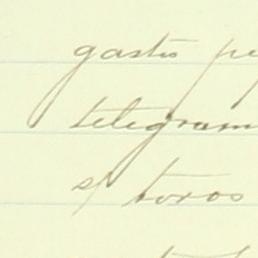 gasto pe
telegram
s/ toros